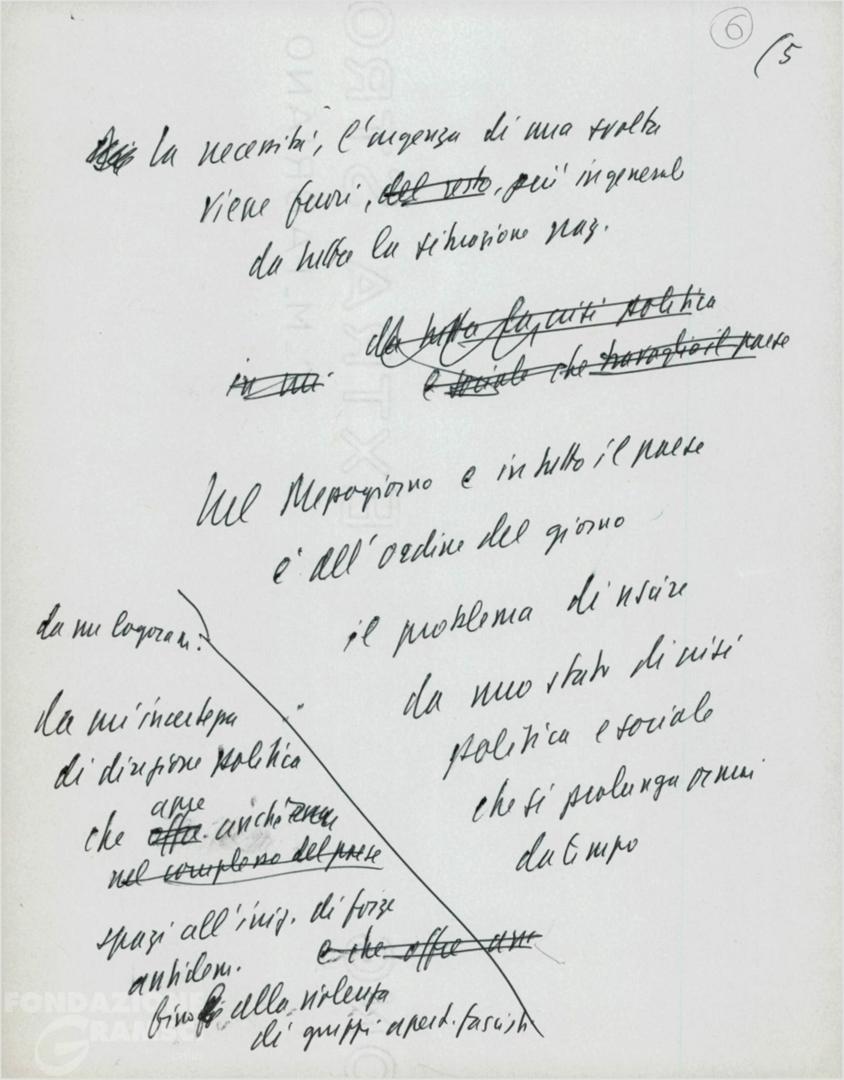 6
(5
la necessità, l'urgenza di una svolta
viene fuori, del resto, più in generale
da tutta la situazione naz.
da tutta la crisi politica
e sociale che travaglia il paese
in cui
Nel Mezzogiorno e in tutto il paese
è all'ordine del giorno
il problema di uscire
da uno stato di crisi
politica e sociale
che si prolunga ormai
da tempo
da un logoram.
da un'incertezza
di direzione politica
che apre
offre
nel complesso del paese
spazi all'iniz. di forze
antidem.
e che offre
fino alla violenza
di gruppi apert. fascisti
FONDAZIONE
GRAMSCI
EXTRA STRO
M. A
ANO